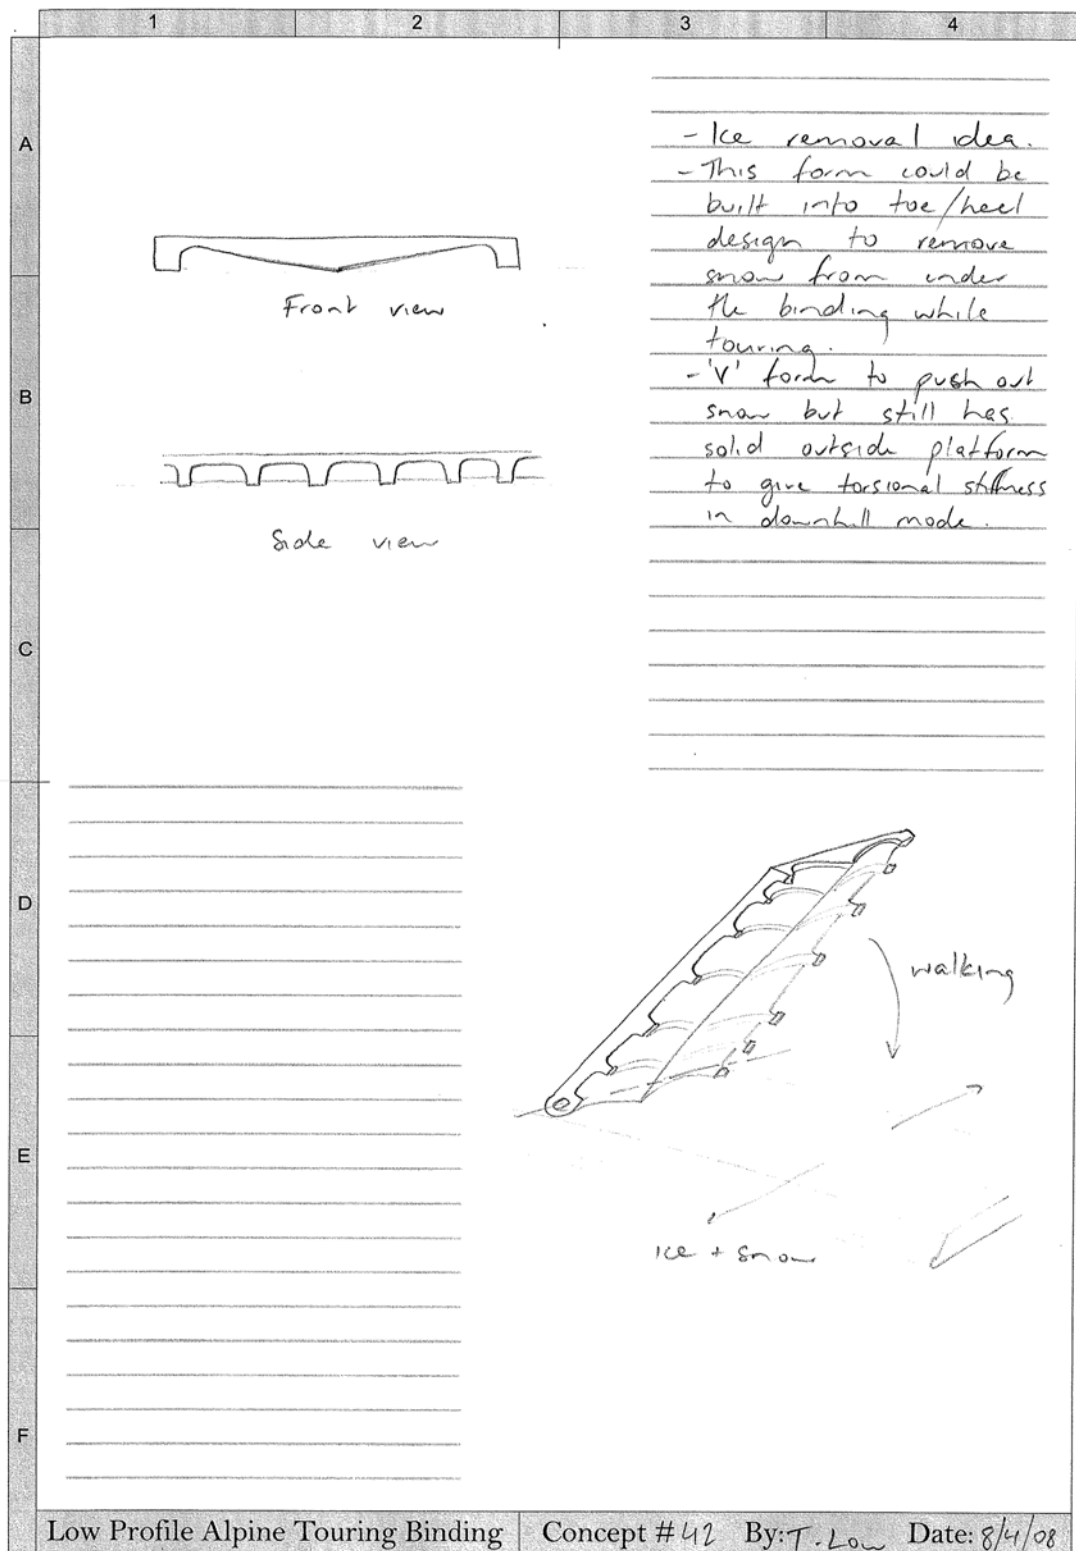 1 2 3 4
A
B
C
D
E
F
- Ice removal idea.
- This form could be
built into toe/heel
design to remove
snow from under
the binding while
touring.
- 'V' form to push out
snow but still has
solid outside platform
to give torsional stiffness
in downhill mode.
Front view
Side view
walking
Ice + Snow
Low Profile Alpine Touring Binding Concept #42 By: T. Low Date: 8/4/08